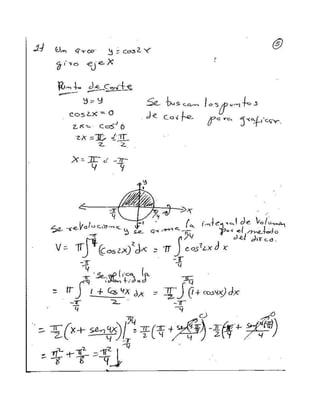 Un arco y = cos2x
giro eje X
Punto de Corte
y = y
cos2x = 0
2x = cos⁻¹ 0
2x = π/2 ∠ π/2
x = π/4 ∠ -π/4
Se buscan los puntos
de corte para graficar.
y
x
Se revoluciona y se arma la integral de Volumen
por el metodo
del disco.
V = π ∫ (cos2x)² dx = π ∫ cos²2x dx
Se aplica la
identidad
= π ∫ 1 + cos4x / 2 dx = π/2 ∫ (1 + cos4x) dx
= π/2 (x + sen4x / 4) = π/2 (π/4 +
= π²/8 + π²/8 = π²/4